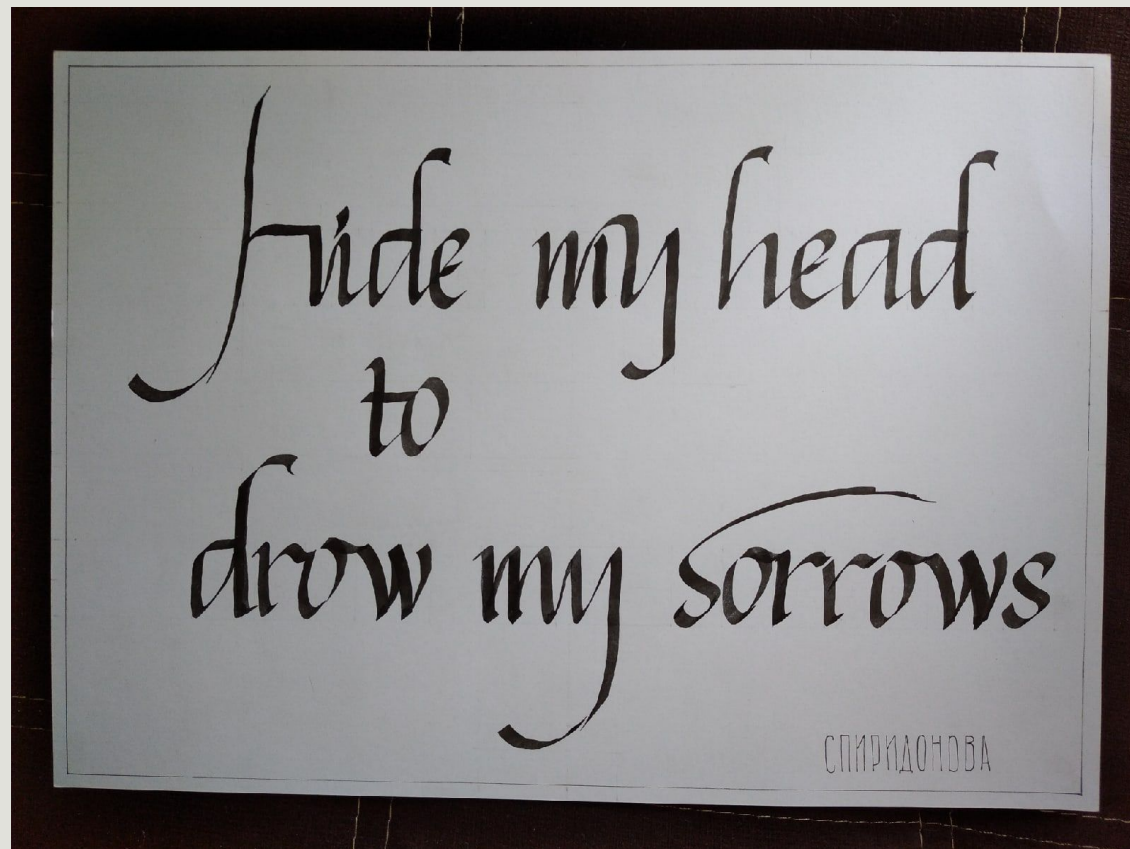 hide my head
to
drow my sorrows
СПИРИДОНОВА